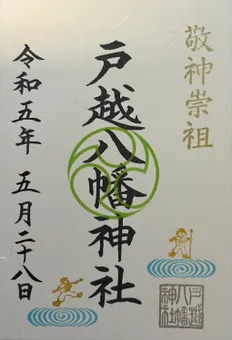 敬神崇祖
戸越八幡神社
令和五年 五月二十八日
戸越
八幡
神社